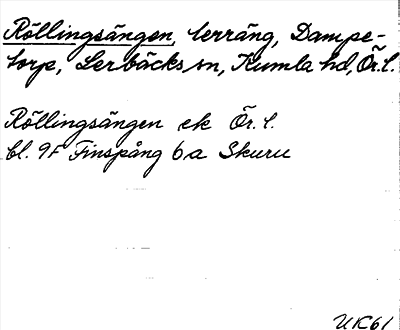 Röllingsängen, terräng, Dampe-
torp, Lerbäcks sn, Kumla hd, Ör. l.
Röllingsängen ek Ör. l.
bl. 9F Finspång 6a Skuru
UK61